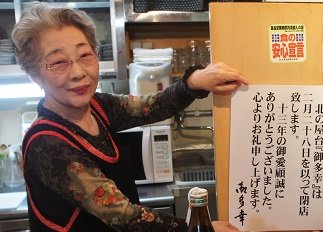 食の
安心宣言
北の屋台『御多幸』は
二月二十八日を以って閉店
致します。
十三年の御愛顧誠に
ありがとうございました。
心よりお礼申し上げます。
御多幸